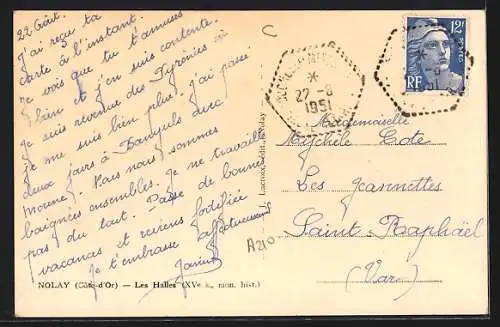 22 Août.
J'ai reçu ta
carte à l'instant.
Je vois que tu t'amuses
bien et j'en suis contente.
Je suis revenue des Pyrénées où
je me suis bien plue. J'ai passé
deux jours à Banyuls avec
Nous nous sommes
baignées ensembles. Je ne travaille
pas du tout. Passe de bonnes
vacances et reviens fortifiée
Je t'embrasse affectueusement
NOLAY (Côte-d'Or) — Les Halles (XVe s., mon. hist.)
C
22-8
1951
12F
POSTES
RF
Mademoiselle
Michèle Cote
Les Jeannettes
Saint-Raphaël
(Var)
A210